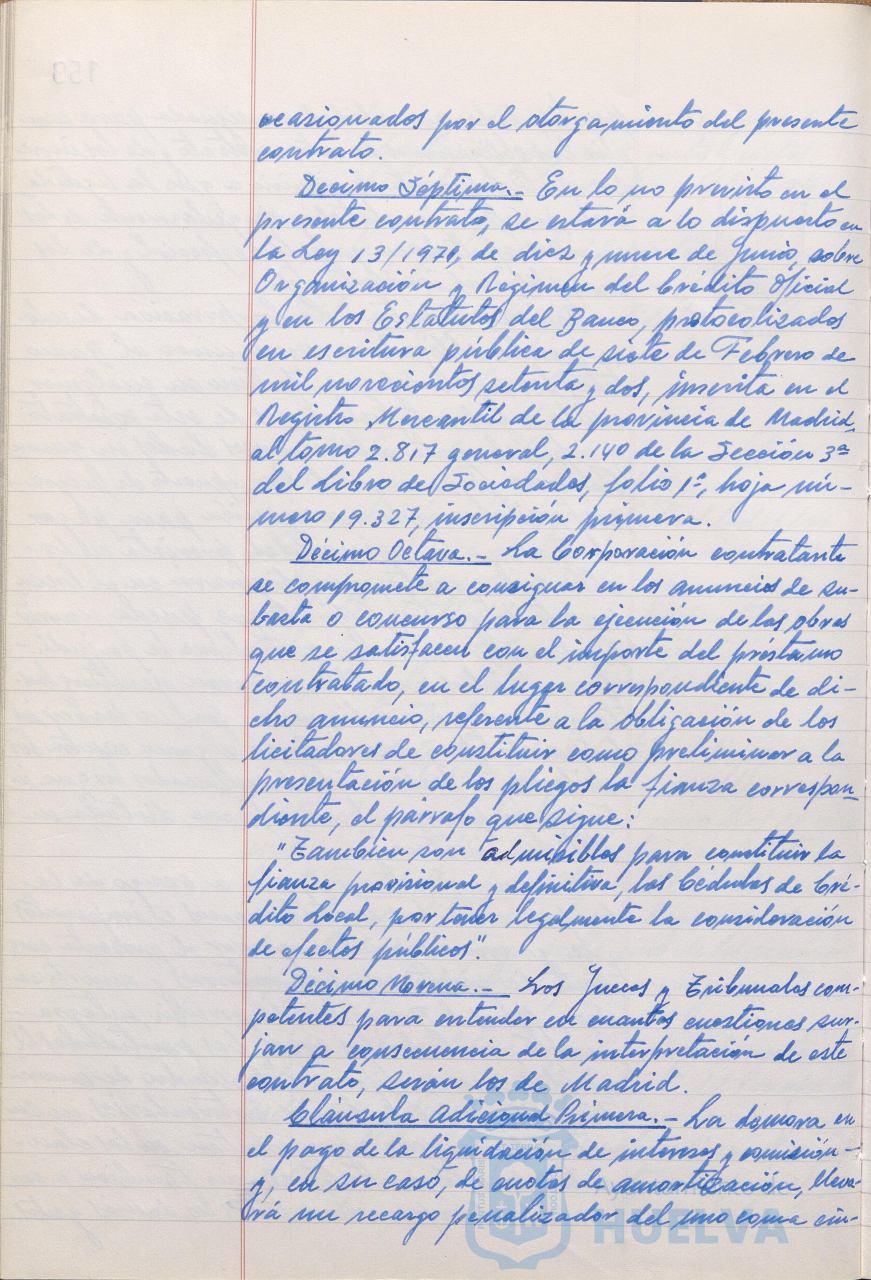 ocasionados por el otorgamiento del presente
contrato.
Décimo Séptima.- En lo no previsto en el
presente contrato, se estará a lo dispuesto en
la Ley 13/1971, de diez y nueve de Junio, sobre
Organización y Régimen del Crédito Oficial
y en los Estatutos del Banco, protocolizados
en escritura pública de siete de Febrero de
mil novecientos setenta y dos, inscrita en el
Registro Mercantil de la provincia de Madrid,
al tomo 2.817 general, 2.140 de la Sección 3ª
del Libro de Sociedades, folio 1º, hoja nú-
mero 19.327, inscripción primera.
Décimo Octava.- La Corporación contratante
se compromete a consignar en los anuncios de su-
basta o concurso para la ejecución de las obras
que se satisfacen con el importe del préstamo
contratado, en el lugar correspondiente de di-
cho anuncio, referente a la obligación de los
licitadores de constituir como preliminar a la
presentación de los pliegos la fianza correspon-
diente, el párrafo que sigue:
"También son admisibles para constituir la
fianza provisional y definitiva, las Cédulas de Cré-
dito Local, por tener legalmente la consideración
de efectos públicos".
Décimo Novena.- Los Jueces y Tribunales com-
petentes para entender en cuantas cuestiones sur-
jan a consecuencia de la interpretación de este
contrato, serán los de Madrid.
Cláusula Adicional Primera.- La demora en
el pago de la liquidación de intereses y comisión-
y, en su caso, de cuotas de amortización, lleva-
rá un recargo penalizador del uno coma cin-
Ayuntamiento de
HUELVA